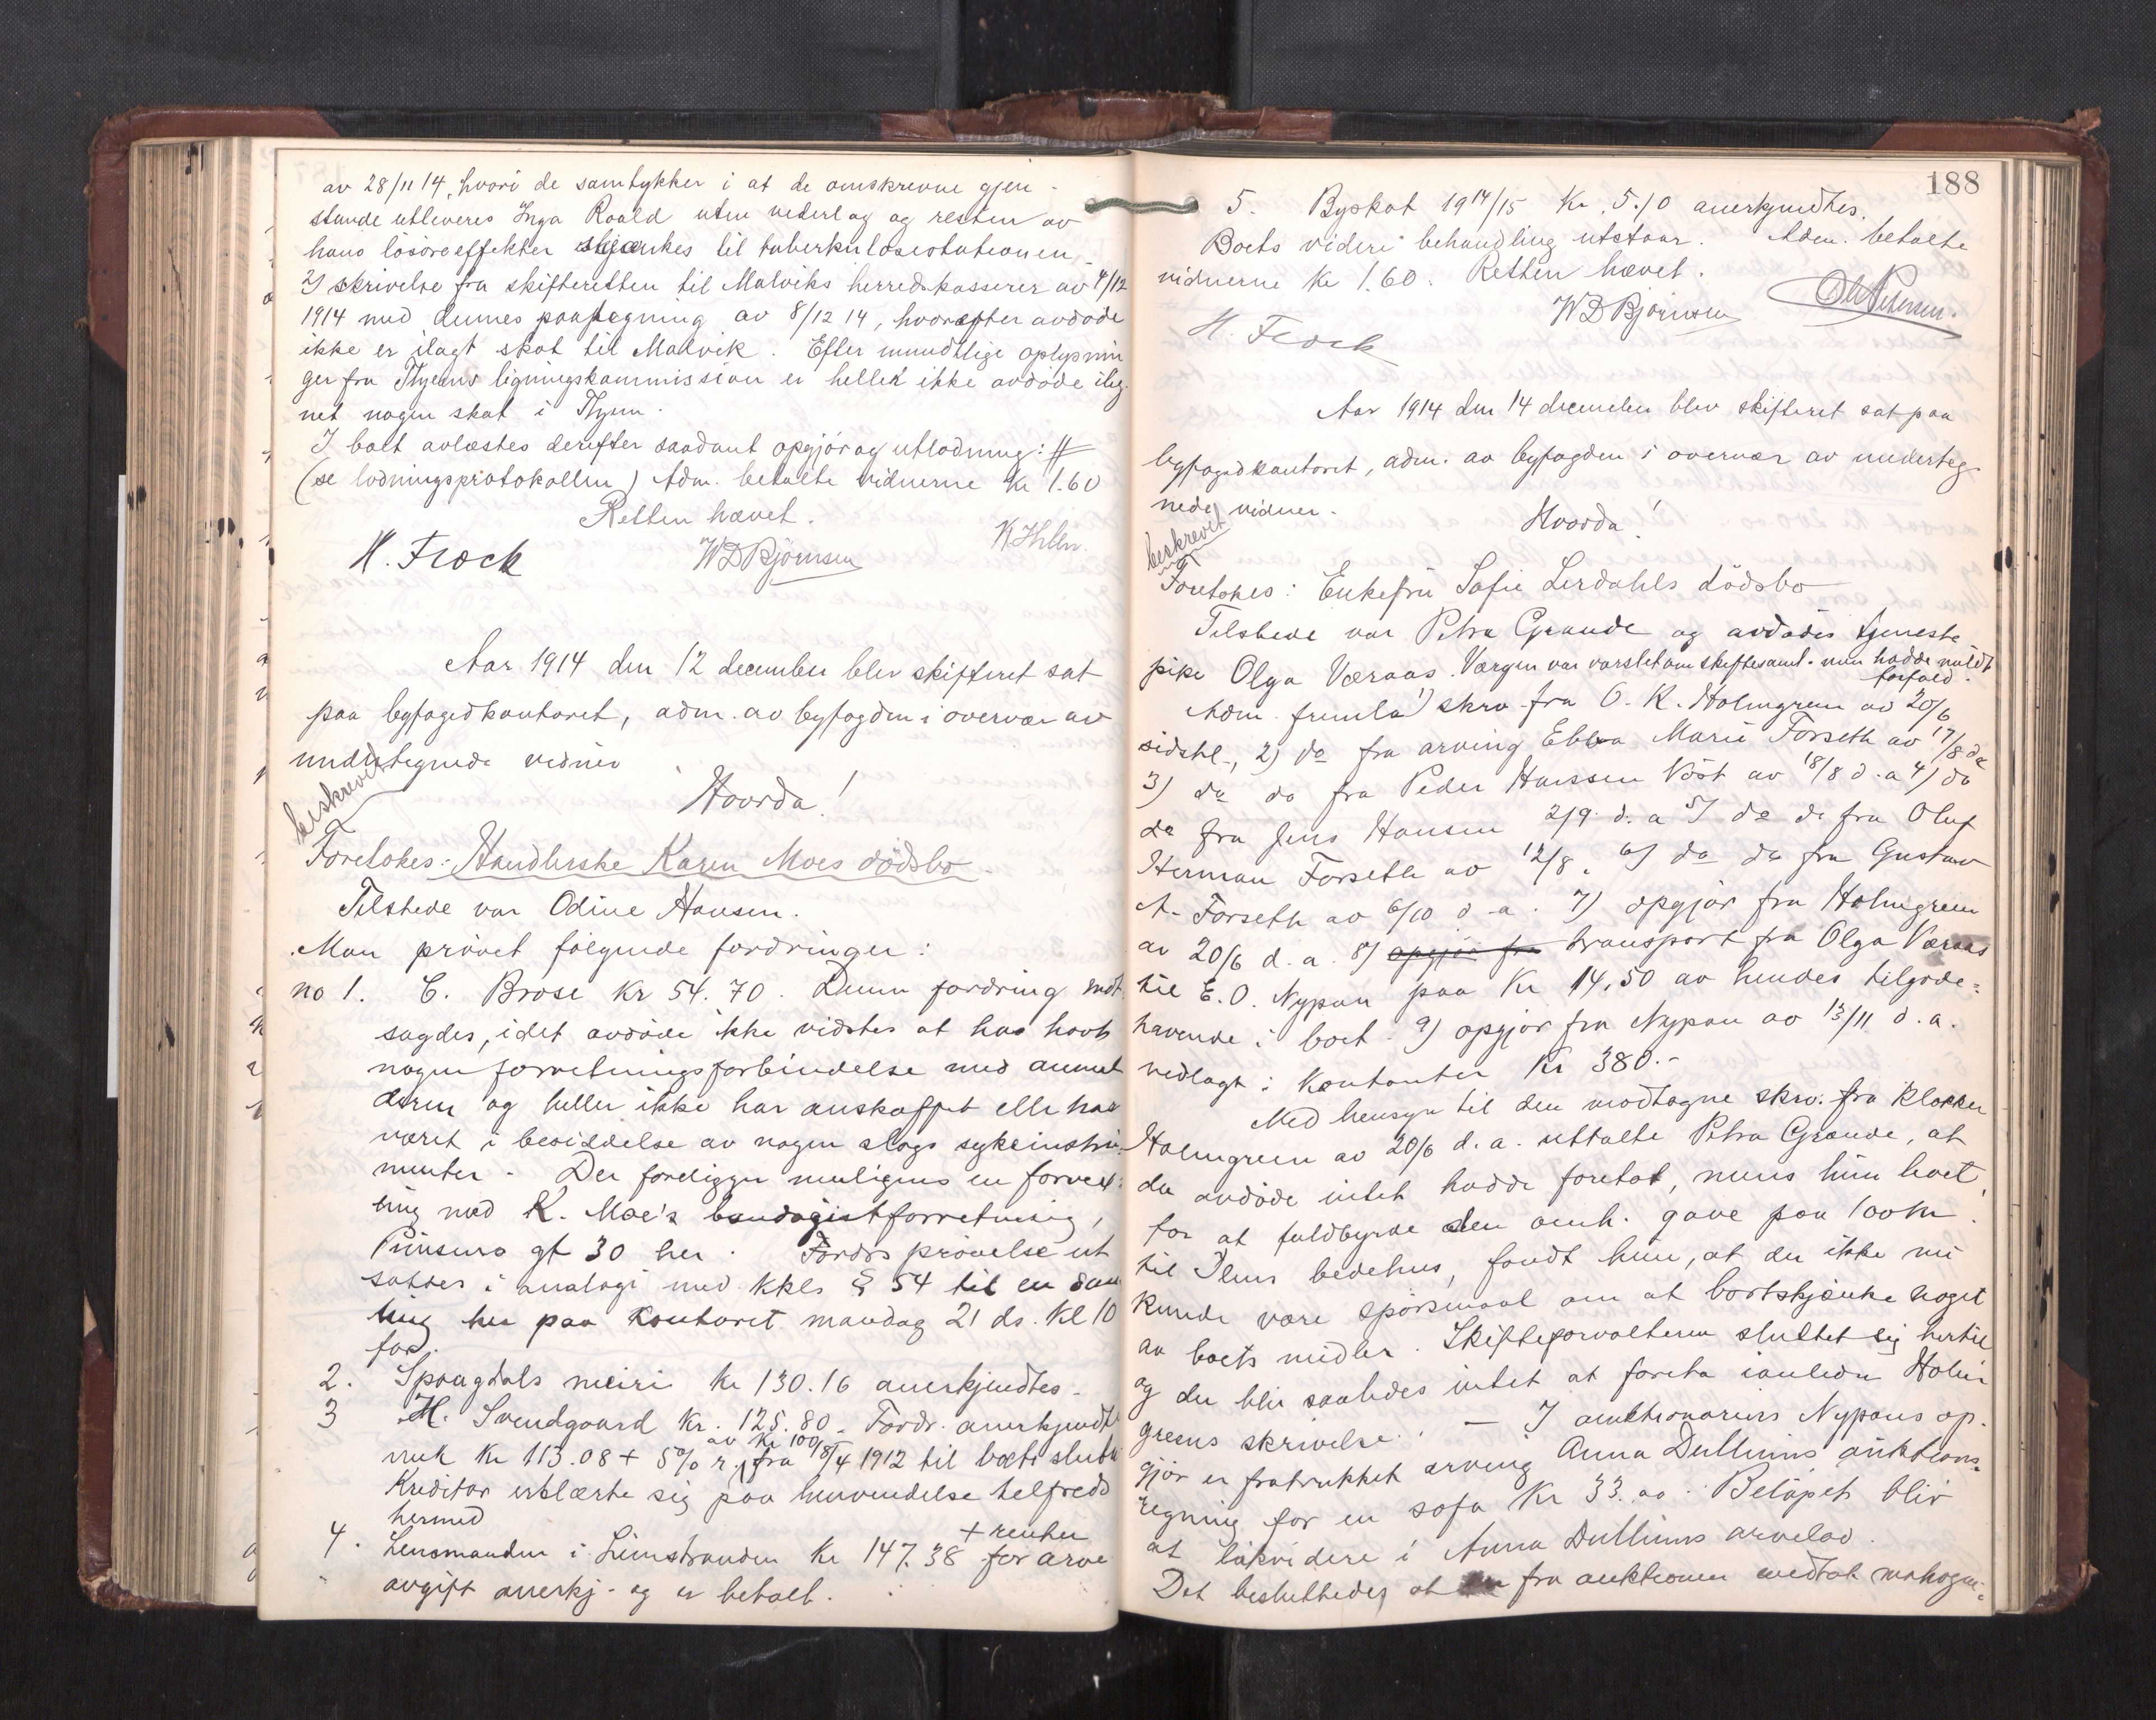 av 28/11 14, hvori de samtykker i at de omskrevne gjen-
stande utleveres Inga Roald uten vederlag og resten av
hans lösöreeffekter skjænkes til tuberkulosestationen.
I skrivelse fra skifteretten til Malviks herredskasserer av 4/12
1914 med dennes paategning av 8/12 14, hvorefter avdöde
ikke er ilagt skat til Malvik. Efter mundtlige oplysnin
ger fra ligningskommission er heller ikke avdöde ilig-
net nogen skat i
I boet avlæstes derefter saadant opgjör og utlodning: #
(se lodningsprotokollen) Adm. betalte vidnerne Kr 1.60
Retten hævet.
H. Flock WDBjörnsen
Aar 1914 den 12 december blev skifteret sat
paa byfogedkontoret, adm. av byfogden i overvær av
undertegnede vidner
Hvorda!
beskrevet
Foretokes: Handlerske Karen Moes dödsbo
Tilstede var Odine Hansen.
Man prövet fölgende fordringer:
no 1. C. Brose Kr 54.70. Denne fordring mot-
sagdes, idet avdöde ikke vidstes at ha havt
nogen forretningsforbindelse med anmel
deren og heller ikke har anskaffet eller har
været i besiddelse av nogen slags sykeinstru-
menter. Der foreligger muligens en forvex-
ling med K. Moe's bandagistforretning,
Prinsens gt 30 her. Fordrs prövelse ut
sattes i analogi med kkls § 54 til en sam
ling her paa Kontoret mandag 21 ds. Kl 10
for.
2. Spongdals meieri Kr 130.16 anerkjendtes.
3 M. Svendgaard Kr. 125.80. Fordr. anerkjendt
med Kr 113.08 + 5% r. av Kr 100 fra 18/4 1912 til boets slutn
Kreditor erklærte sig paa henvendelse tilfreds
hermed
4. Lensmanden i Leinstranden Kr 147.38 + renter for arve
avgift anerkj. og er betalt.
188
5. Byskat 1914/15 Kr. 5.10 anerkjendtes.
Boets videre behandling utstaar. Adm. betalte
vidnerne Kr 1.60. Retten hævet.
WDBjörnsen
H. Flock
Aar 1914 den 14 december blev skifteret sat paa
byfogedkontoret, adm. av byfogden i overvær av underteg-
nede vidner.
Hvorda!
beskrevet
Foretokes: Enkefru Sofie Lerdahls dödsbo
Tilstede var Petra Grande og avdödes tjeneste
pike Olga Væraas. Værgen var varslet om skiftesaml. men hadde meldt
forfald.
Adm. fremla 1) skrv. fra O. K. Holmgren av 20/6
sidstl., 2) do fra arving Ebba Marie Forseth av 17/8 da
3) do do fra Peder Hanssen Vöst av 18/8 d. a 4) do
do fra Jens Hansen 2/9. d. a 5) do do fra Oluf
Herman Forseth av 12/8. 6) do do fra Gustav
A. Forseth av 6/10 d. a. 7) opgjör fra Holmgren
av 20/6 d. a. 8) opgjör fra transport fra Olga Væraas
til E. O. Nypan paa Kr 14,50 av hendes tilgode-
havende i boet. 9) opgjör fra Nypan av 13/11 d. a.
vedlagt i Kontanter Kr 380.-
Med hensyn til den modtagne skrv. fra Klokker
Holmgreen av 20/6 d. a. uttalte Petra Grande, at
da avdöde intet hadde foretat, mens hun levet,
for at fuldbyrde den omh. gave paa 100 Kr
til Ilens bedehus, fandt hun, at der ikke nu
kunde være spörsmaal om at bortskjænke noget
av boets midler. Skifteforvalteren sluttet sig hertil
og der blir saaledes intet at foreta i anledn Holm
greens skrivelse. — I auktionarius Nypans op-
gjör er fratrukket arving Anna Dullums auktions-
regning for en sofa Kr 33.00. Belöpet blir
at likvidere i Anna Dullums arvelod.
Det besluttedes at fra auktionen medtat mahogni-